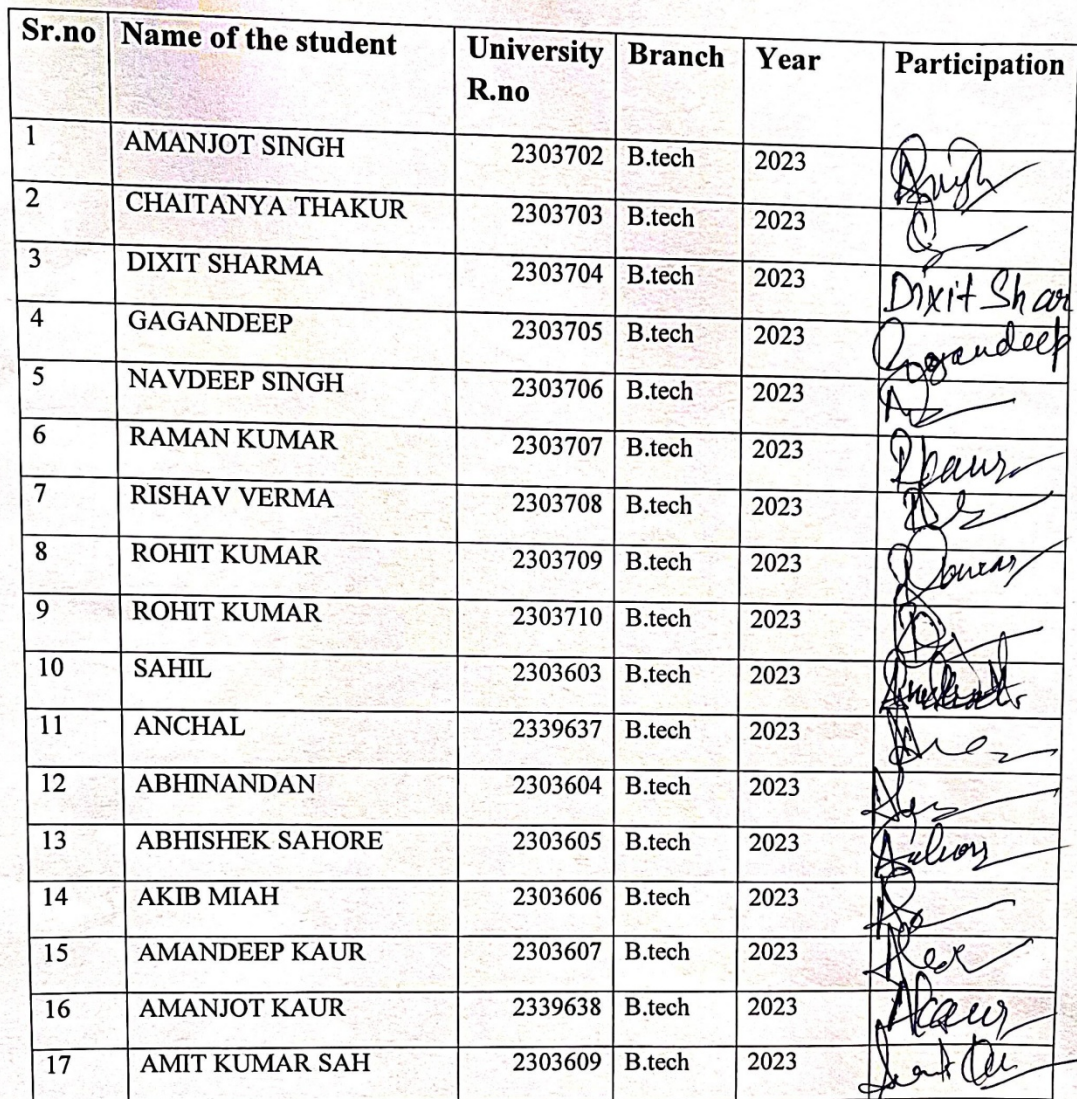 Sr.no Name of the student University R.no Branch Year Participation
1 AMANJOT SINGH 2303702 B.tech 2023
2 CHAITANYA THAKUR 2303703 B.tech 2023
3 DIXIT SHARMA 2303704 B.tech 2023 Dixit Shar
4 GAGANDEEP 2303705 B.tech 2023 Gagandeep
5 NAVDEEP SINGH 2303706 B.tech 2023
6 RAMAN KUMAR 2303707 B.tech 2023
7 RISHAV VERMA 2303708 B.tech 2023
8 ROHIT KUMAR 2303709 B.tech 2023
9 ROHIT KUMAR 2303710 B.tech 2023
10 SAHIL 2303603 B.tech 2023
11 ANCHAL 2339637 B.tech 2023
12 ABHINANDAN 2303604 B.tech 2023
13 ABHISHEK SAHORE 2303605 B.tech 2023
14 AKIB MIAH 2303606 B.tech 2023
15 AMANDEEP KAUR 2303607 B.tech 2023
16 AMANJOT KAUR 2339638 B.tech 2023
17 AMIT KUMAR SAH 2303609 B.tech 2023